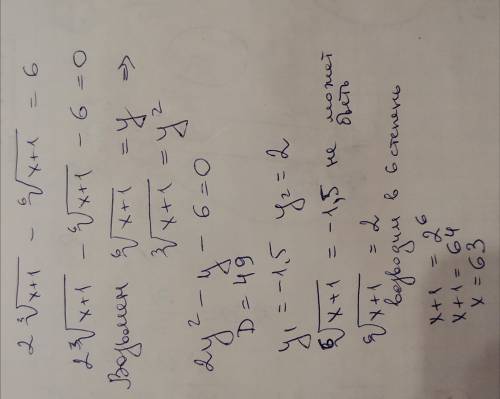 2∛(x+1) - ⁶√(x+1) = 6
2∛(x+1) - ⁶√(x+1) - 6 = 0
Возьмем ⁶√(x+1) = y ⇒
∛(x+1) = y²
2y² - y - 6 = 0
D = 49
y₁ = -1,5 y₂ = 2
⁶√(x+1) = -1,5 не может
быть
⁶√(x+1) = 2
возводим в 6 степень
x+1 = 2⁶
x+1 = 64
x = 63